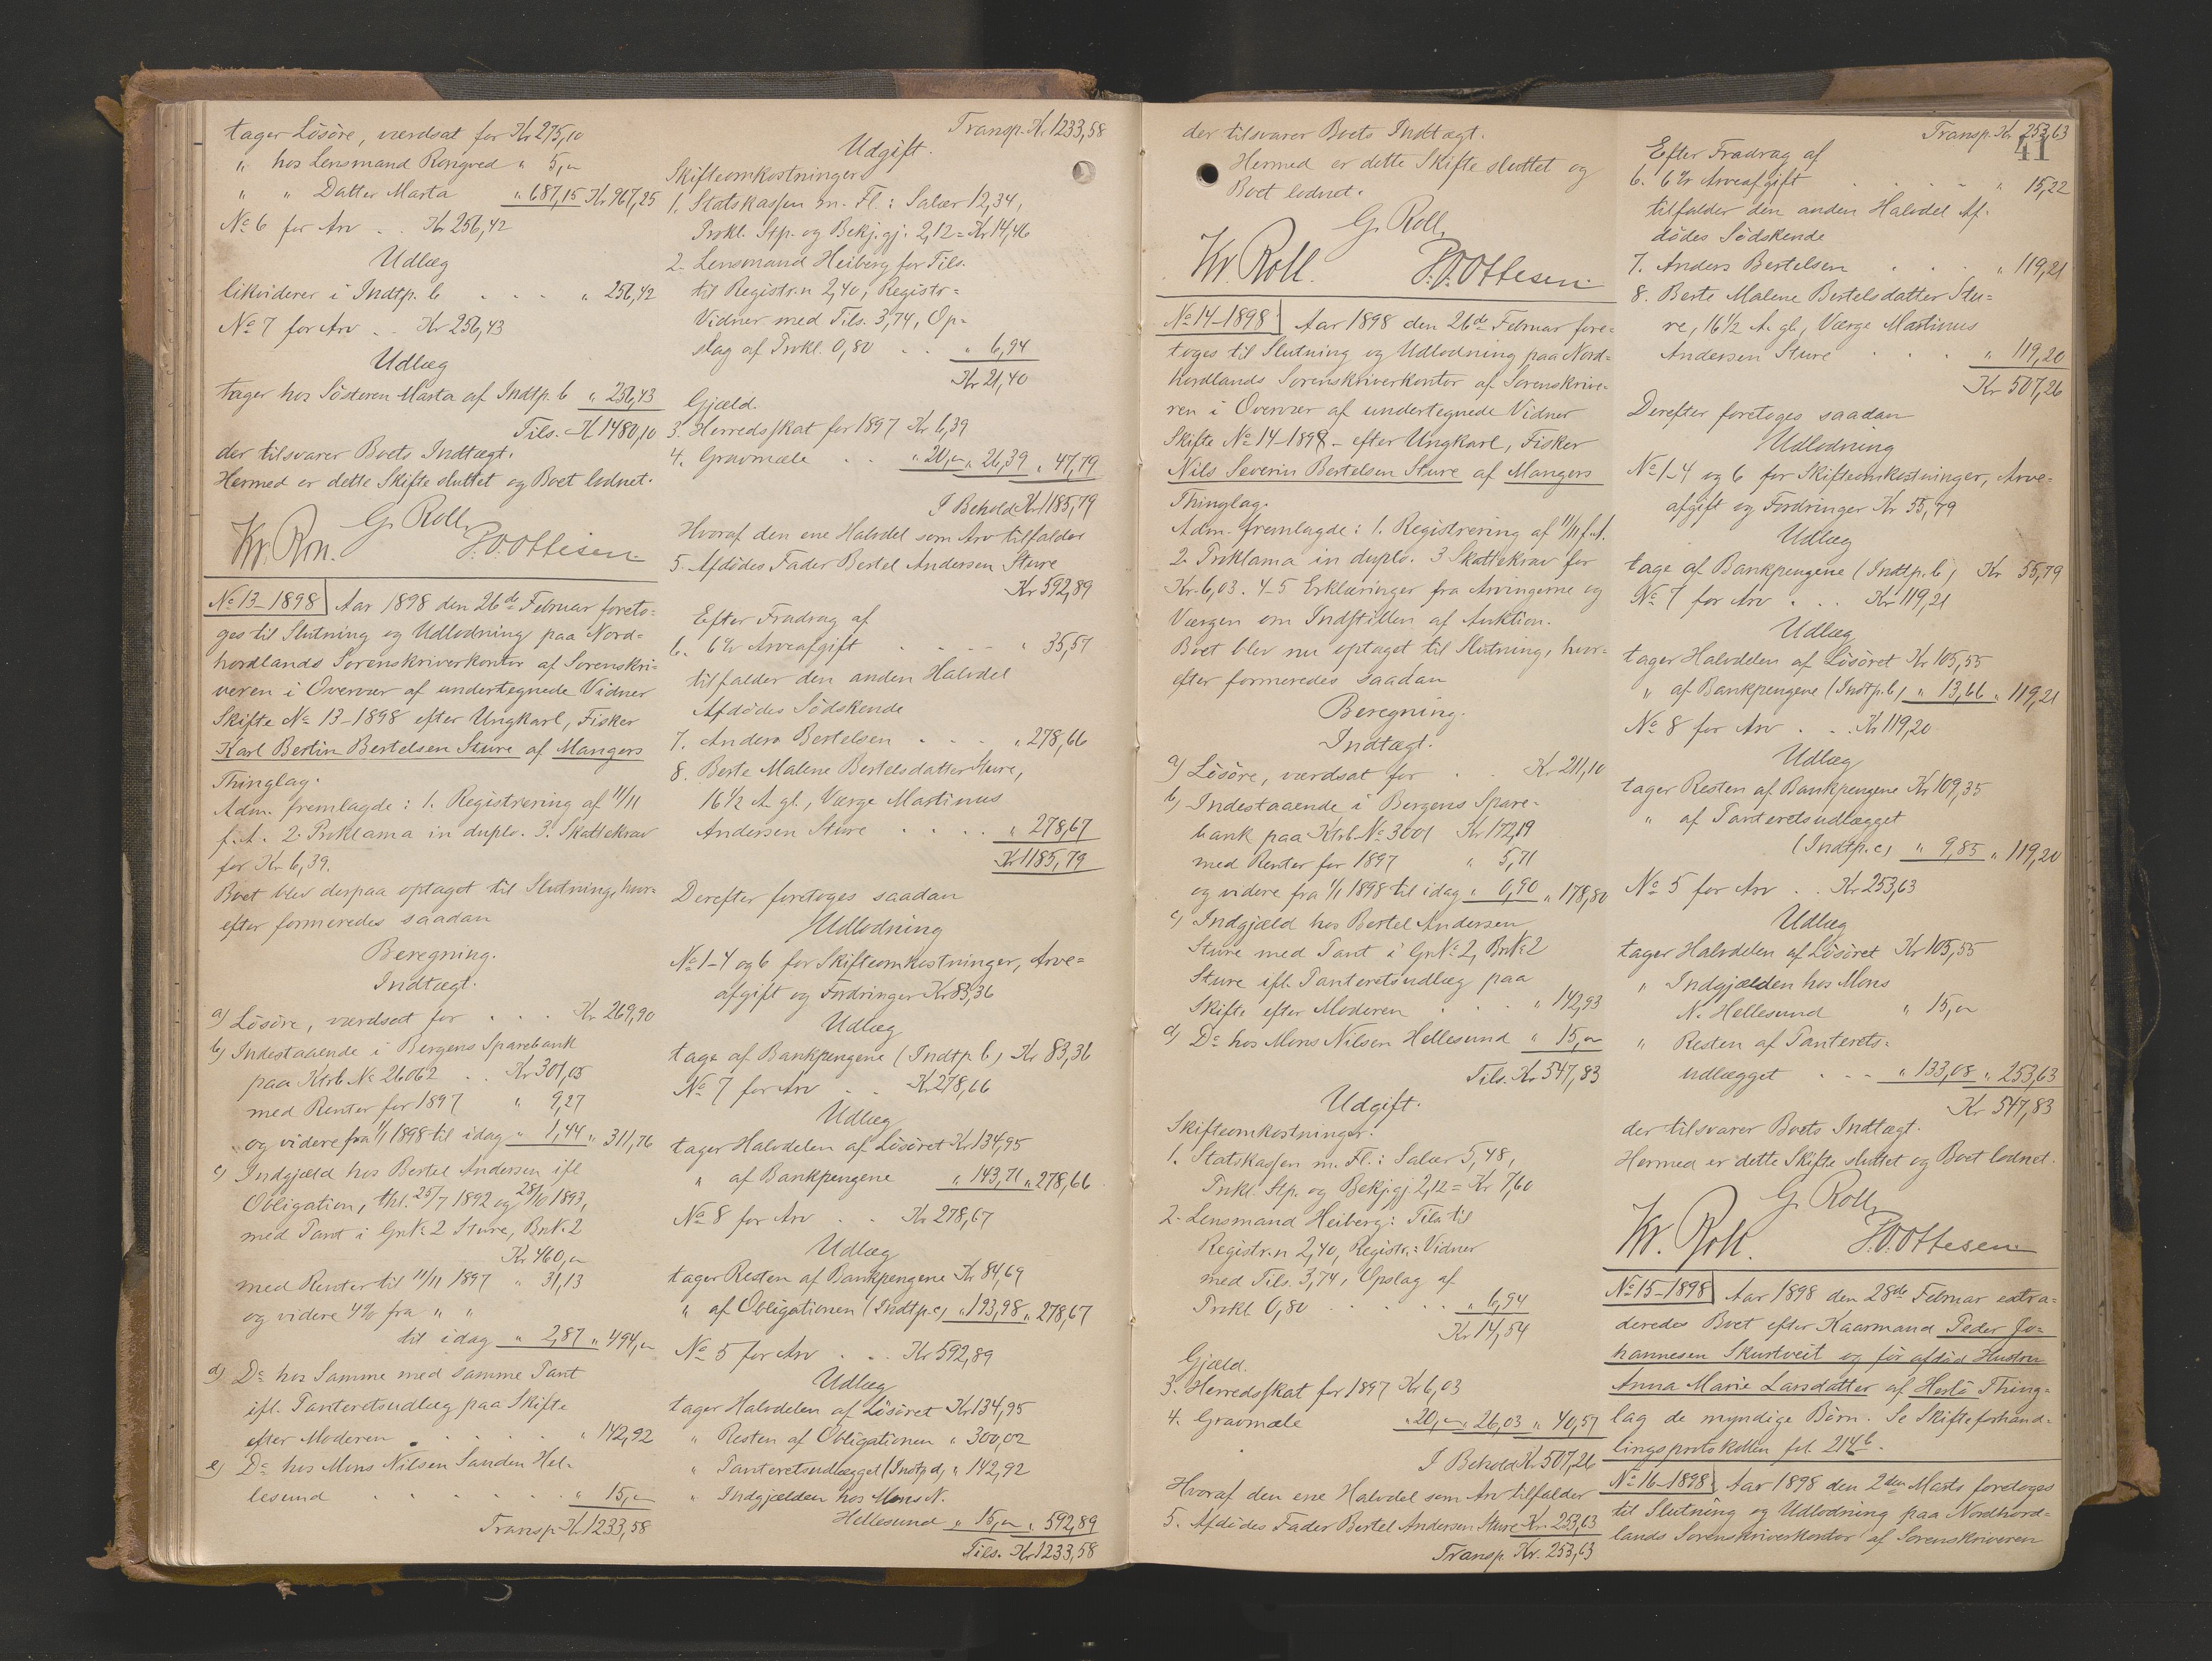 tager Lösöre, værdsat for Kr 275,10
" hos Lensmand Rongved " 5,"
" " Datter Marta " 687,15 Kr 967,25
No 6 for Arv . . Kr 256,42
Udlæg
likviderer i Indtp. b . . . " 256,42
No 7 for Arv . . Kr 256,43
Udlæg
tager hos Sösteren Marta af Indtp. b " 256,43
Tils. Kr 1480,10
der tilsvarer Boets Indtægt.
Hermed er dette Skifte sluttet og Boet lodnet.
G. Roll
Kr. Roll. P.O. Ottesen
No 13-1898 Aar 1898 den 26de Februar foreto=
ges til Slutning og Udlodning paa Nord=
hordlands Sorenskriverkontor af Sorenskri=
veren i Overvær af undertegnede Vidner
Skifte No 13-1898 efter Ungkarl, Fisker
Karl Bertin Bertelsen Sture af Mangers
Thinglag.
Adm. fremlagde: 1. Registrering af 11/11
f. A. 2. Proklama in duplo. 3. Skattekrav
for Kr. 6,39.
Boet blev derpaa optaget til Slutning, hvor=
efter formeredes saadan
Beregning.
Indtægt.
a) Lösöre, værdsat for . . . Kr 269,90
b) Indestaaende i Bergens Sparebank
paa Ktrb. No 26062 . . Kr 301,05
med Renter for 1897 " 9,27
og videre fra 1/1 1898 til idag " 1,44 " 311,76
c) Indgjæld hos Bertel Andersen ifl
Obligation, thl. 25/7 1892 og 28/10 1893,
med Pant i GrNo 2 Sture, BrNo 2
Kr 460,"
med Renter til 11/11 1897 " 31,13
og videre 4% fra " "
til idag " 2,87 " 494,"
d) Do hos Samme med samme Pant
ifl. Panteretsudlæg paa Skifte
efter Moderen . . . . " 142,92
e) Do hos Mons Nilsen Sanden Hel=
lesund . . . . . . " 15,"
Transp Kr 1233,58
Transp. Kr. 1233,58
Udgift.
Skifteomkostninger
1. Statskassen m. Fl.: Salær 12,34,
Prokl. Stp. og Bekj.gj. 2,12 = Kr 14,46
2. Lensmand Heiberg for Tils.
til Registr.n 2,40, Registr=
Vidner med Tils. 3,74, Op=
slag af Prokl. 0,80 . . " 6,94
Kr 21,40
Gjæld.
3. Herredsskat for 1897 Kr 6,39
4. Gravmæle . . " 20,"" 26,39 " 47,79
I Behold Kr 1185,79
Hvoraf den ene Halvdel som Arv tilfalder
5. Afdödes Fader Bertel Andersen Sture
Kr 592,89
Efter Fradrag af
6. 6% Arveafgift . . . . " 35,57
tilfalder den anden Halvdel
Afdödes Södskende
7. Anders Bertelsen . . . " 278,66
8. Berte Malene Bertelsdatter Sture,
16 1/2 A. gl., Værge Martinus
Andersen Sture . . . . " 278,67
Kr 1185,79
Derefter foretoges saadan
Udlodning
No 1-4 og 6 for Skifteomkostninger, Arve=
afgift og Fordringer Kr 83,36
Udlæg
tage af Bankpengene (Indtp b) Kr 83,36
No 7 for Arv . . Kr 278,66
Udlæg
tager Halvdelen af Lösöret Kr 134,95
" af Bankpengene " 143,71 " 278,66
No 8 for Arv . . Kr 278,67
Udlæg
tager Resten af Bankpengene Kr 84,69
" af Obligationen (Indtp. c) " 193,98 " 278,67
No 5 for Arv . . . Kr 592,89
Udlæg
tager Halvdelen af Lösöret Kr 134,95
" Resten af Obligationen " 300,02
" Panteretsudlægget (Indtp d) " 142,92
" Indgjælden hos Mons N.
Hellesund " 15," " 592,89
Tils. Kr 1233,58
der tilsvarer Boets Indtægt.
Hermed er dette Skifte sluttet og
Boet lodnet.
G. Roll
Kr. Roll. P.O. Ottesen
No 14-1898 Aar 1898 den 26de Februar fore=
toges til Slutning og Udlodning paa Nord=
hordlands Sorenskriverkontor af Sorenskrive=
ren i Overvær af undertegnede Vidner
Skifte No 14-1898 - efter Ungkarl, Fisker
Nils Severin Bertelsen Sture af Mangers
Thinglag.
Adm. fremlagde: 1. Registrering af 11/11 f. A.
2. Proklama in duplo. 3 Skattekrav for
Kr. 6,03. 4-5 Erklæringer fra Arvingerne og
Værgen om Indstillen af Auktion.
Boet blev nu optaget til Slutning, hvor=
efter formeredes saadan
Beregning.
Indtægt.
a) Lösöre, værdsat for . . Kr 211,10
b) Indestaaende i Bergens Spare=
bank paa Ktrb. No 3001 Kr 172,19
med Renter for 1897 " 5,71
og videre fra 1/1 1898 til idag " 0,90 " 178,80
c) Indgjæld hos Bertel Andersen
Sture med Pant i GrNo 2, BrNo 2
Sture ifl. Panteretsudlæg paa
Skifte efter Moderen . . . " 142,93
d) Do hos Mons Nilsen Hellesund " 15,"
Tils. Kr 547,83
Udgift.
Skifteomkostninger.
1. Statskassen m. Fl.: Salær 5,48,
Prokl. Stp. og Bekj.gj. 2,12 = Kr 7,60
2. Lensmand Heiberg: Tils til
Registr.n 2,40, Registr.=Vidner
med Tils. 3,74, Opslag af
Prokl 0,80 . . . . " 6,94
Kr 14,54
Gjæld.
3. Herredsskat for 1897 Kr 6,03
4. Gravmæle " 20," " 26,03 " 40,57
I Behold Kr 507,26
Hvoraf den ene Halvdel som Arv tilfalder
5. Afdödes Fader Bertel Andersen Sture Kr. 253,63
Transp. Kr. 253,63
Transp. Kr 253,63
41
Efter Fradrag af
6. 6% Arveafgift . . . . " 15,22
tilfalder den anden Halvdel Af.
dödes Södskende
7. Anders Bertelsen . . . " 119,21
8. Berte Malene Bertelsdatter Stu=
re, 16 1/2 A. gl., Værge Martinus
Andersen Sture . . . " 119,20
Kr 507,26
Derefter foretoges saadan
Udlodning
No 1-4 og 6 for Skifteomkostninger, Arve=
afgift og Fordringer Kr 55,79
Udlæg
tage af Bankpengene (Indtp. b) Kr 55,79
No 7 for Arv . . . Kr 119,21
Udlæg
tager Halvdelen af Lösöret Kr 105,55
" af Bankpengene (Indtp. b) " 13,66 " 119,21
No 8 for Arv . . Kr 119,20
Udlæg
tager Resten af Bankpengene Kr 109,35
" af Panteretsudlægget
(Indtp. c) " 9,85 " 119,20
No 5 for Arv . . Kr 253,63
Udlæg
tager Halvdelen af Lösöret Kr 105,55
" Indgjælden hos Mons
N. Hellesund " 15,"
" Resten af Panterets=
udlægget . . . " 133,08 " 253,63
Kr 547,83
der tilsvarer Boets Indtægt.
Hermed er dette Skifte sluttet og Boet lodnet.
G. Roll
Kr. Roll. P.O. Ottesen
No 15-1898 Aar 1898 den 28de Februar extra=
deredes Boet efter Kaarmand Peder Jo=
hannesen Skurtveit og för afdöd Hustru
Anna Marie Larsdatter af Herlö Thing=
lag de myndige Börn. Se Skifteforhand=
lingsprotokollen fol. 214b.
No 16-1898 Aar 1898 den 2den Marts foretoges
til Slutning og Udlodning paa Nordhord=
lands Sorenskriverkontor af Sorenskriveren